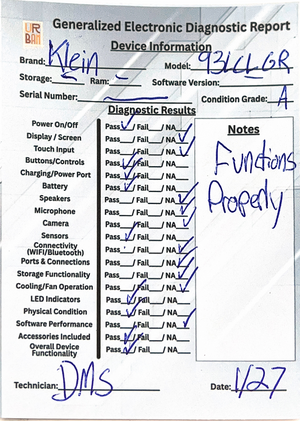 URBAN
Generalized Electronic Diagnostic Report
Device Information
Brand: Klein Model: 93LCLGR
Storage: — Ram: — Software Version:
Serial Number: — Condition Grade: A
Diagnostic Results
Power On/Off Pass ✓/Fail /NA
Display / Screen Pass /Fail /NA ✓
Touch Input Pass /Fail /NA ✓
Buttons/Controls Pass ✓/Fail /NA
Charging/Power Port Pass ✓/Fail /NA
Battery Pass ✓/Fail /NA
Speakers Pass /Fail /NA ✓
Microphone Pass /Fail /NA ✓
Camera Pass /Fail /NA ✓
Sensors Pass ✓/Fail /NA
Connectivity
(WIFI/Bluetooth) Pass /Fail /NA ✓
Ports & Connections Pass /Fail /NA ✓
Storage Functionality Pass /Fail /NA ✓
Cooling/Fan Operation Pass /Fail /NA ✓
LED Indicators Pass ✓/Fail /NA
Physical Condition Pass ✓/Fail /NA
Software Performance Pass /Fail /NA ✓
Accessories Included Pass ✓/Fail /NA
Overall Device
Functionality Pass ✓/Fail /NA
Notes
Functions
Properly
Technician: DMS Date: 1/27